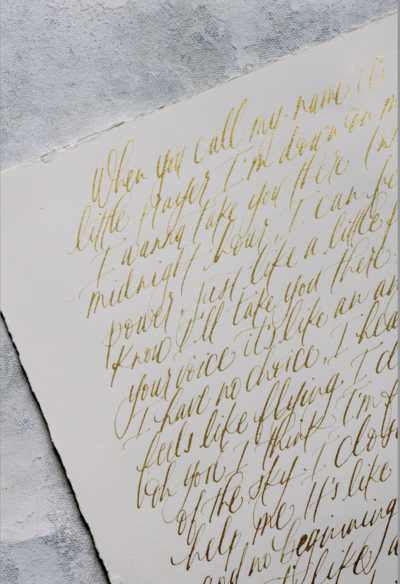 When you call my name it's
little prayer I'm down on m
I wanna take you there. In
midnight hour, I can fe
power just like a little p
know I'll take you there.
your voice it's like an an
I have no choice, I hea
feels like flying. I cl
ooh you I think I'm f
of the sky. I close
help me. It's like
and no beginning
it's like a